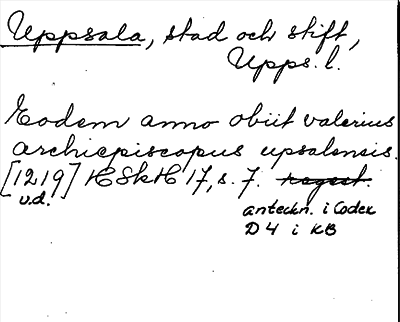 Uppsala, stad och stift,
Upps. l.
Eodem anno obiit valerius
archiepiscopus upsalensis.
[1219] HSkH 17, s. 7. regest.
u.d.
anteckn. i Codex
D 4 i KB